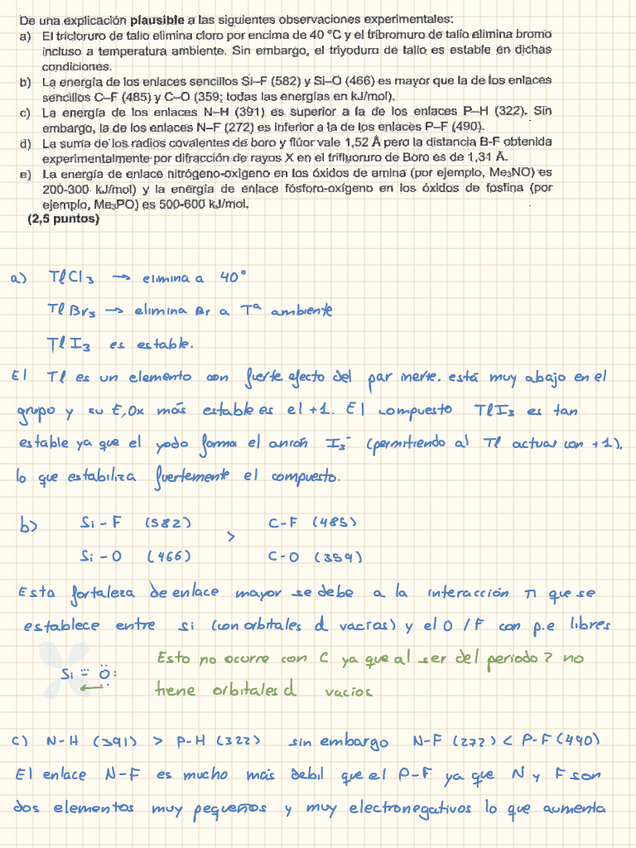 De una explicación plausible a las siguientes observaciones experimentales:
a) El tricloruro de talio elimina cloro por encima de 40 °C y el tribromuro de talio elimina bromo
incluso a temperatura ambiente. Sin embargo, el triyoduro de talio es estable en dichas
condiciones.
b) La energía de los enlaces sencillos Si–F (582) y Si–O (466) es mayor que la de los enlaces
sencillos C–F (485) y C–O (359; todas las energías en kJ/mol).
c) La energía de los enlaces N–H (391) es superior a la de los enlaces P–H (322). Sin
embargo, la de los enlaces N–F (272) es inferior a la de los enlaces P–F (490).
d) La suma de los radios covalentes de boro y flúor vale 1,52 Å pero la distancia B-F obtenida
experimentalmente por difracción de rayos X en el trifluoruro de Boro es de 1,31 Å.
e) La energía de enlace nitrógeno-oxígeno en los óxidos de amina (por ejemplo, Me₃NO) es
200-300 kJ/mol) y la energía de enlace fósforo-oxígeno en los óxidos de fosfina (por
ejemplo, Me₃PO) es 500-600 kJ/mol.
(2,5 puntos)
a) TlCl₃ → elimina a 40°
TlBr₃ → elimina Br a Tª ambiente
TlI₃ es estable.
El Tl es un elemento con fuerte efecto del par inerte. está muy abajo en el
grupo y su E.Ox más estable es el +1. El compuesto TlI₃ es tan
estable ya que el yodo forma el anión I₃⁻ (permitiendo al Tl actuar con +1),
lo que estabiliza fuertemente el compuesto.
b) Si-F (582) > C-F (485)
Si-O (466) C-O (359)
Esta fortaleza de enlace mayor se debe a la interacción π que se
establece entre si (con orbitales d vacios) y el O /F con p.e libres
Esto no ocurre con C ya que al ser del periodo 2 no
Si = Ö: tiene orbitales d vacios
c) N-H (391) > P-H (322) sin embargo N-F (272) < P-F (490)
El enlace N-F es mucho más debil que el P-F ya que N y F son
dos elementos muy pequeños y muy electronegativos lo que aumenta